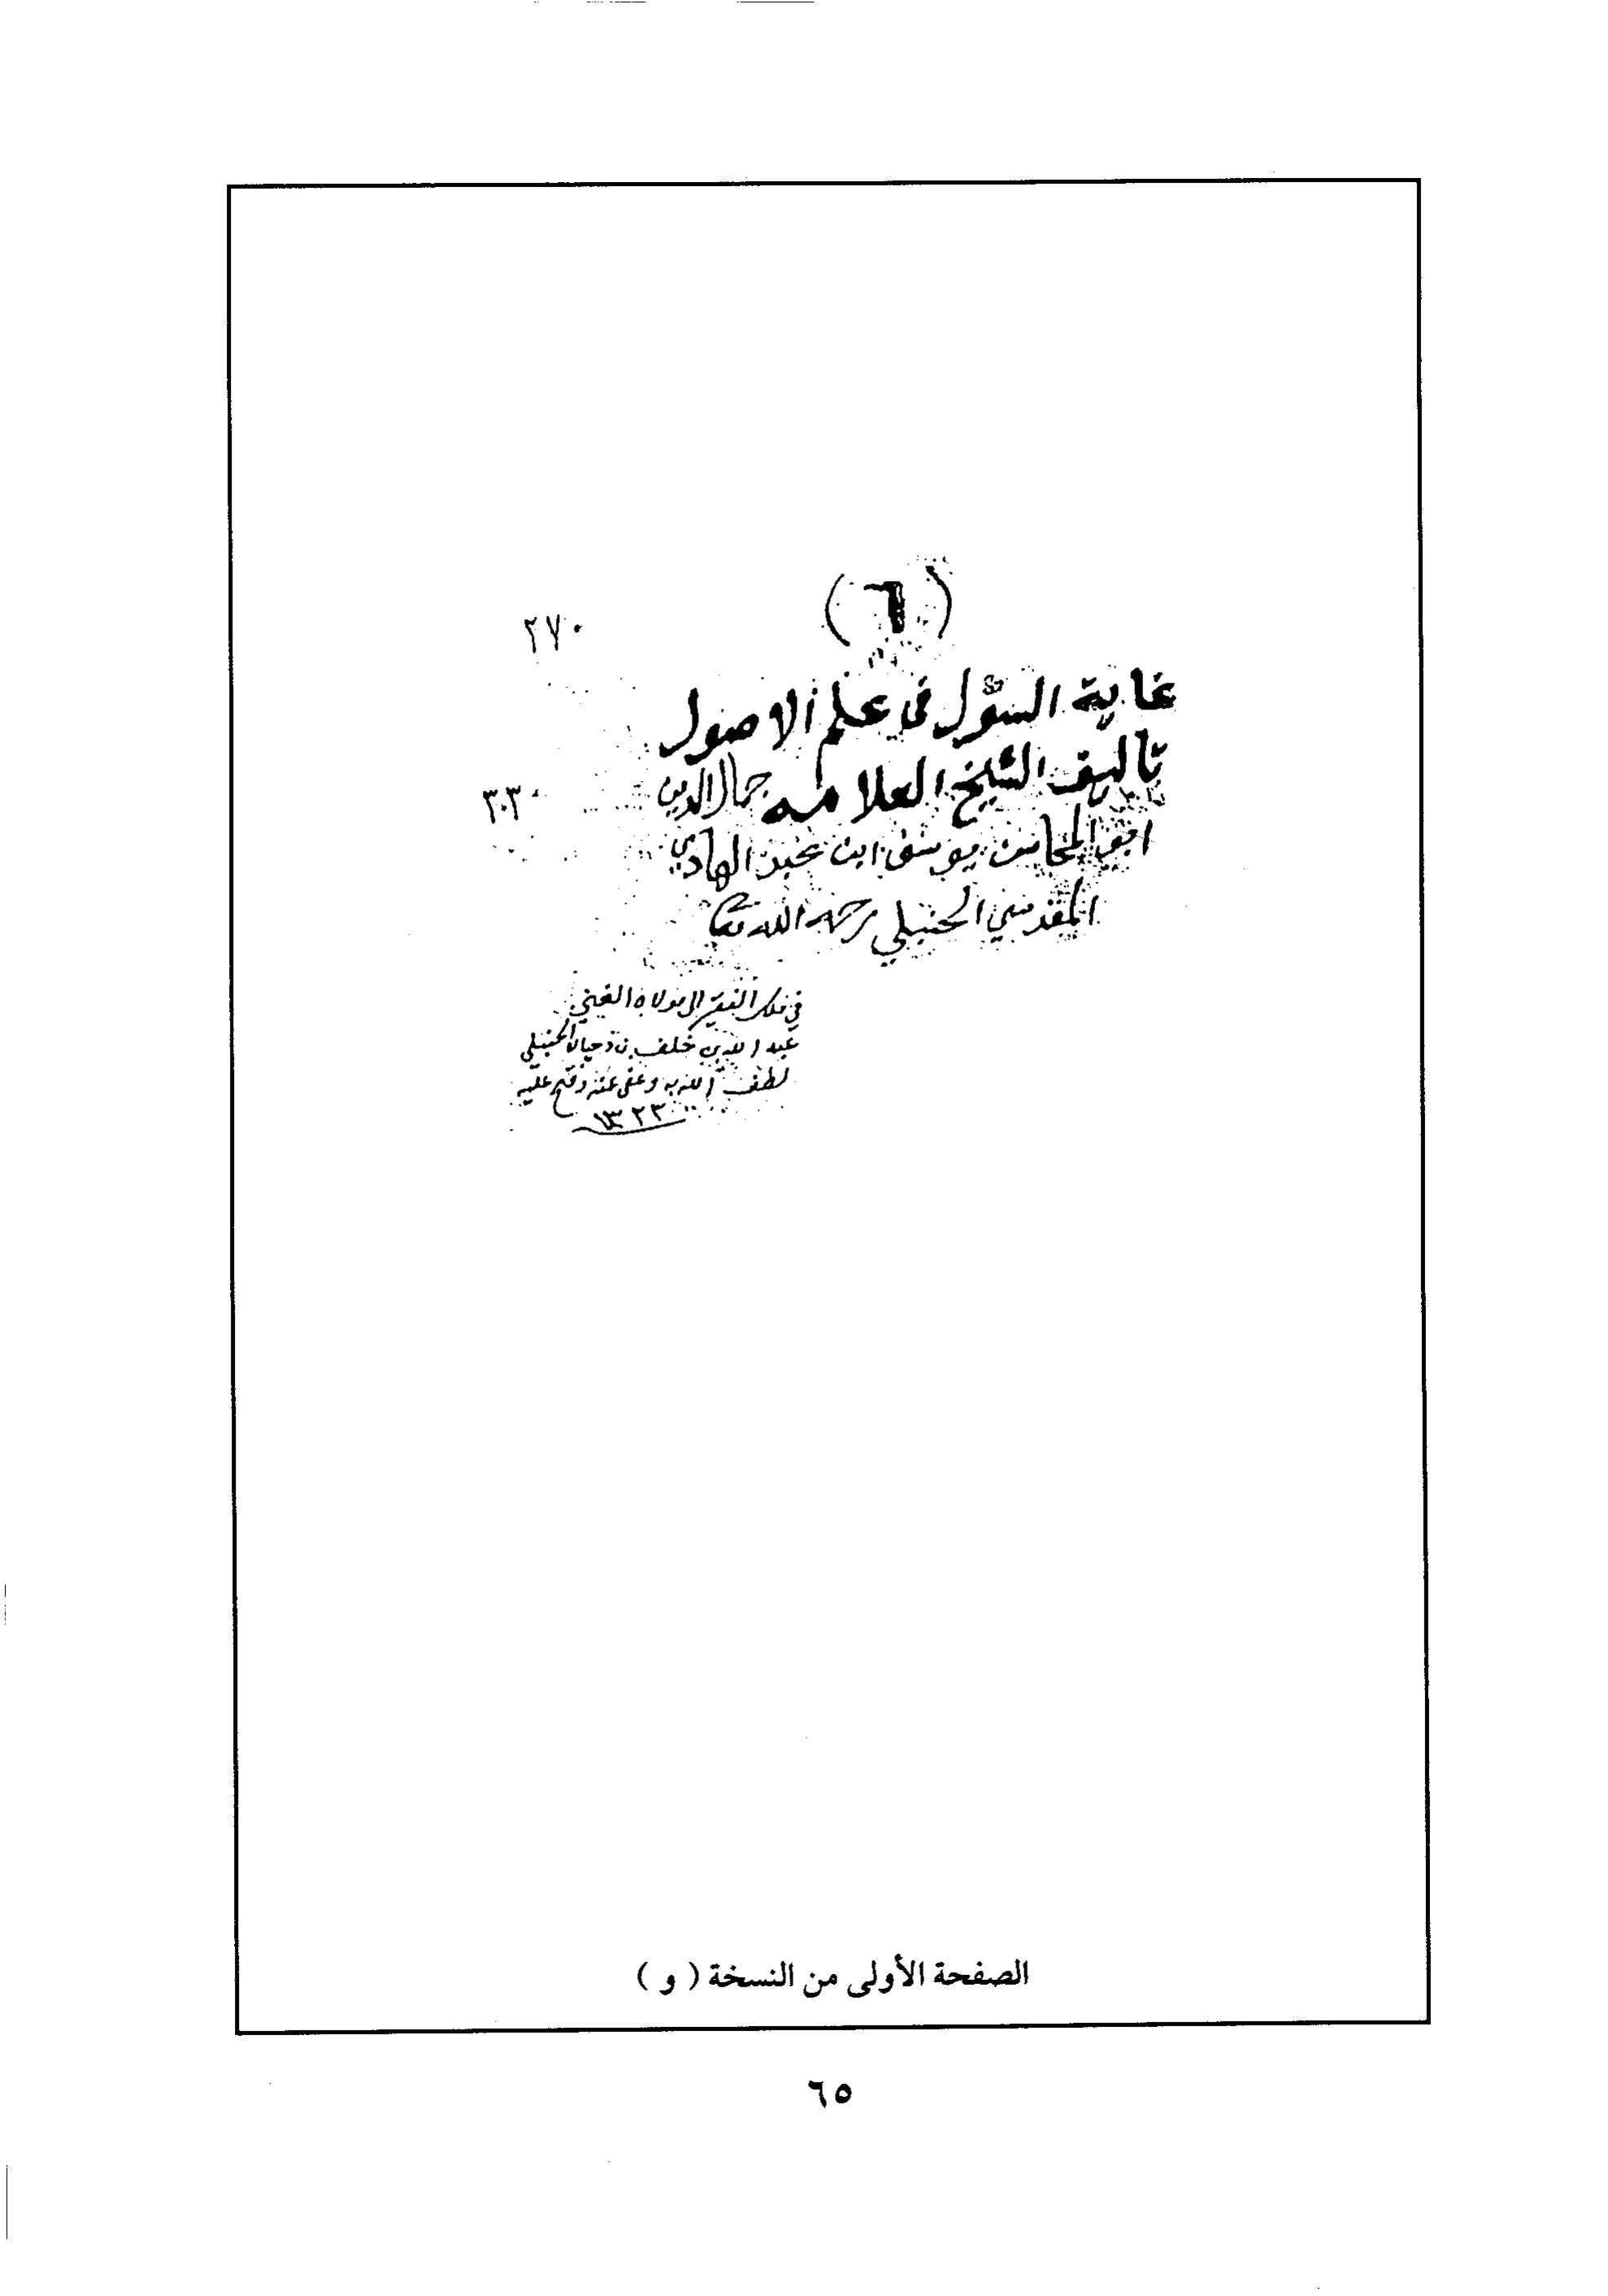 (٦)
٢٧٠
غاية السؤل في علم الاصول
تاليف الشيخ العلامه جمال الدين
٣٠٣٠
ابي المحاسن يوسف ابن عبد الهادي
المقدسي الحنبلي رحمه الله تعالى
في ملك الفقير الى مولاه الغني
عبد الله بن خلف بن دحيان الحنبلي
لطف الله به وعفى عنه وفتح عليه
١٣٢٣
الصفحة الأولى من النسخة ( و )
٦٥